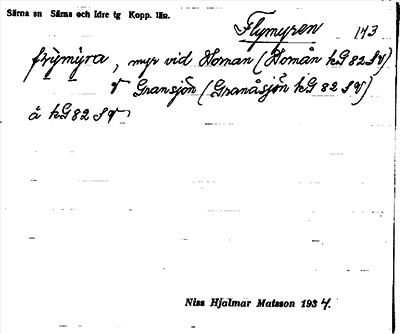 Särna sn Särna och Idre tg Kopp. län.
Flymyren 143
frỳmýra, myr vid Homan (Homån kG 82 SV)
V Gransjön (Granåsjön kG 82 SV)
å kG 82 SV
Niss Hjalmar Matsson 1934.